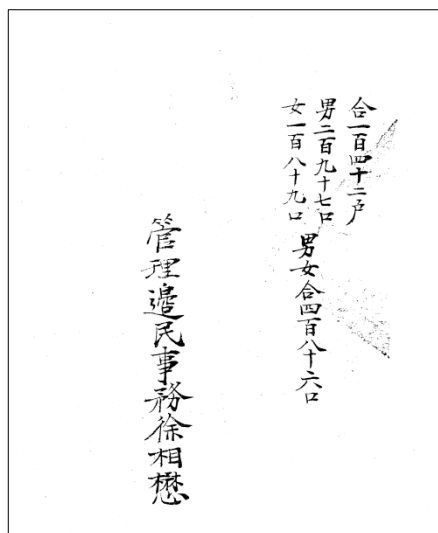 合一百四十二户
男二百九十七口
女一百八十九口
男女合四百八十六口
管理邊民事務徐相懋